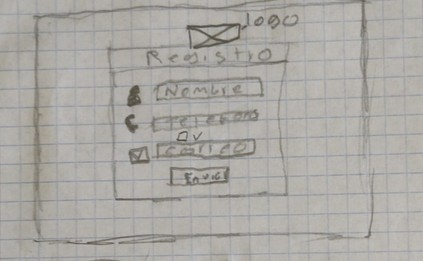 logo
Registro
Nombre
Telefono
Correo